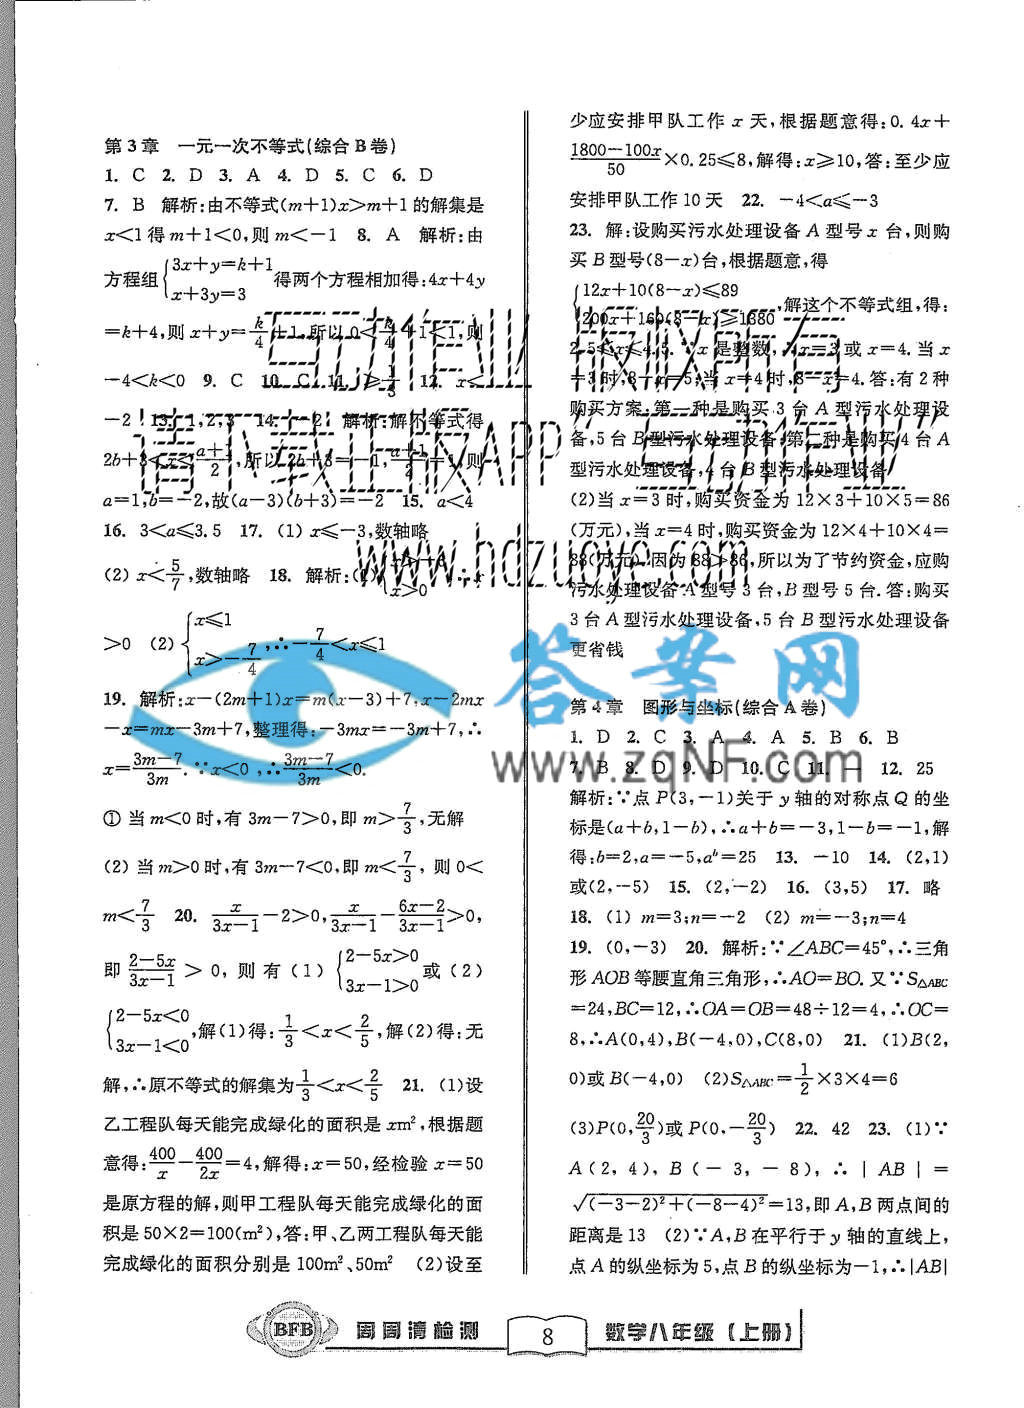 第3章 一元一次不等式(综合B卷)
1. C 2. D 3. A 4. D 5. C 6. D
7. B 解析:由不等式(m+1)x>m+1的解集是
x<1得m+1<0,则m<-1 8. A 解析:由
方程组{3x+y=k+1 x+3y=3 得两个方程相加得:4x+4y
=k+4,则x+y=k/4+1,所以0<k/4+1<1,则
-4<k<0 9. C 10. C 11. ≥1/3 12. x≤
-2 13. 1,2,3 14. -2 解析:解不等式得
2b+3<x<(a+1)/2,所以2b+3=-1,(a+1)/2=1,则
a=1,b=-2,故(a-3)(b+3)=-2 15. a<4
16. 3<a≤3.5 17. (1) x≤-3,数轴略
(2) x<5/7,数轴略 18. 解析:(1) x>0 ,∴x
>0 (2){x≤1 x>-7/4,∴-7/4<x≤1
19. 解析:x-(2m+1)x=m(x-3)+7,x-2mx
-x=mx-3m+7,整理得:-3mx=-3m+7,∴
x=(3m-7)/3m.∵x<0,∴(3m-7)/3m<0.
①当m<0时,有3m-7>0,即m>7/3,无解
(2)当m>0时,有3m-7<0,即m<7/3,则0<
m<7/3 20. x/(3x-1)-2>0,x/(3x-1)-(6x-2)/(3x-1)>0,
即(2-5x)/(3x-1)>0,则有(1){2-5x>0 3x-1>0或(2)
{2-5x<0 3x-1<0,解(1)得:1/3<x<2/5,解(2)得:无
解,∴原不等式的解集为1/3<x<2/5 21. (1)设
乙工程队每天能完成绿化的面积是xm²,根据题
意得:400/x-400/2x=4,解得:x=50,经检验x=50
是原方程的解,则甲工程队每天能完成绿化的面
积是50×2=100(m²),答:甲、乙两工程队每天能
完成绿化的面积分别是100m²、50m² (2)设至
少应安排甲队工作x天,根据题意得:0.4x+
(1800-100x)/50×0.25≤8,解得:x≥10,答:至少应
安排甲队工作10天 22. -4<a≤-3
23. 解:设购买污水处理设备A型号x台,则购
买B型号(8-x)台,根据题意,得
{12x+10(8-x)≤89 200x+160(8-x)≥1380,解这个不等式组,得:
2.5≤x≤4.5.∵x是整数,∴x=3或x=4.当x
=3时,8-x=5;当x=4时,8-x=4.答:有2种
购买方案:第一种是购买3台A型污水处理设
备,5台B型污水处理设备;第二种是购买4台A
型污水处理设备,4台B型污水处理设备
(2)当x=3时,购买资金为12×3+10×5=86
(万元),当x=4时,购买资金为12×4+10×4=
88(万元).因为88>86,所以为了节约资金,应购
污水处理设备A型号3台,B型号5台.答:购买
3台A型污水处理设备,5台B型污水处理设备
更省钱
第4章 图形与坐标(综合A卷)
1. D 2. C 3. A 4. A 5. B 6. B
7. B 8. D 9. D 10. C 11. 一 12. 25
解析:∵点P(3,-1)关于y轴的对称点Q的坐
标是(a+b,1-b),∴a+b=-3,1-b=-1,解
得:b=2,a=-5,aᵇ=25 13. -10 14. (2,1)
或(2,-5) 15. (2,-2) 16. (3,5) 17. 略
18. (1) m=3;n=-2 (2) m=-3;n=4
19. (0,-3) 20. 解析:∵∠ABC=45°,∴三角
形AOB等腰直角三角形,∴AO=BO.又∵S△ABC
=24,BC=12,∴OA=OB=48÷12=4,∴OC=
8,∴A(0,4),B(-4,0),C(8,0) 21. (1)B(2,
0)或B(-4,0) (2)S△ABC=1/2×3×4=6
(3)P(0,20/3)或P(0,-20/3) 22. 42 23. (1)∵
A(2,4),B(-3,-8),∴|AB|=
√((-3-2)²+(-8-4)²)=13,即A,B两点间的
距离是13 (2)∵A,B在平行于y轴的直线上,
点A的纵坐标为5,点B的纵坐标为-1,∴|AB|
BFB 周周清检测 8 数学八年级(上册)
www.hdzuoye.com
答案网
www.zqNF.com